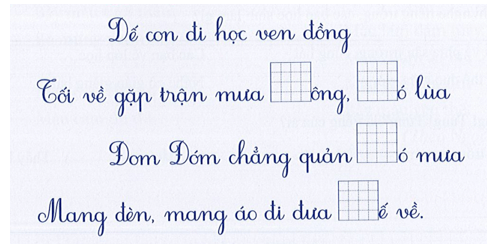 Dế con đi học ven đồng
Tối về gặp trận mưa ông, ó lùa
Đom Đóm chẳng quản ó mưa
Mang đèn, mang áo đi đưa ế về.